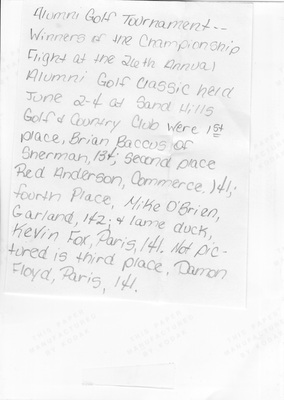 Alumni Golf Tournament--
Winners of the Championship
Flight at the 26th Annual
Alumni Golf Classic held
June 2-4 at Sand Hills
Golf & Country Club were 1st
place, Brian Baccus of
Sherman, 134; second place
Red Anderson, Commerce, 141;
fourth Place, Mike O'Brien,
Garland, 142; & lame duck,
Kevin Fox, Paris, 141. Not pic-
tured is third place, Damon
Floyd, Paris, 141.